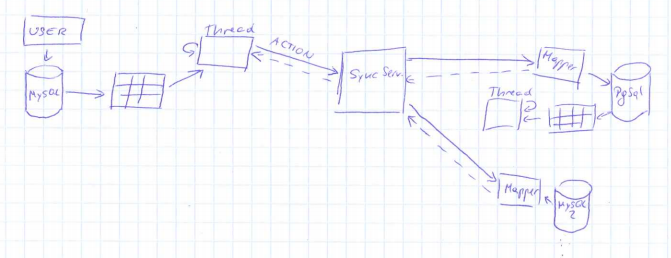 USER
MySQL
Thread
ACTION
Sync Serv.
Mapper
PgSql
Thread
Mapper
MySQL
2